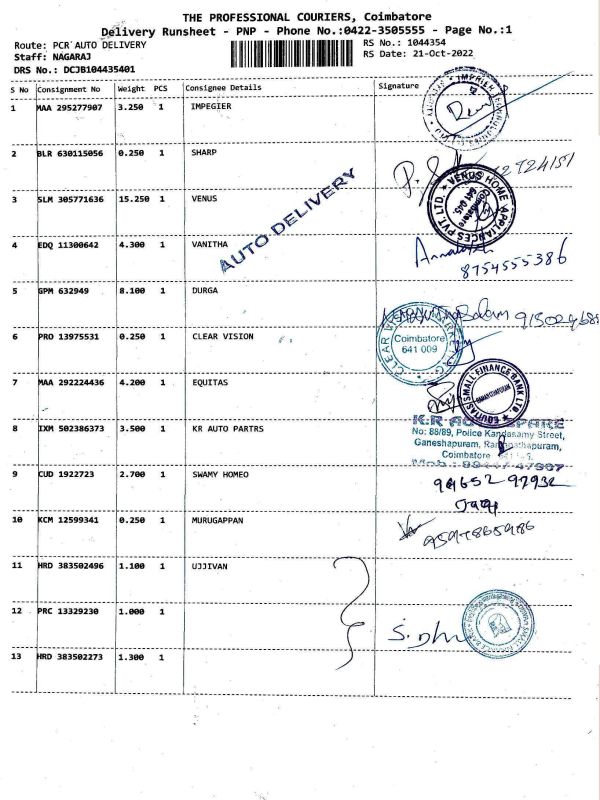 THE PROFESSIONAL COURIERS, Coimbatore
Delivery Runsheet - PNP - Phone No.:0422-3505555 - Page No.:1
Route: PCR AUTO DELIVERY
RS No.: 1044354
Staff: NAGARAJ
RS Date: 21-Oct-2022
DRS No.: DCJB104435401
S No Consignment No Weight PCS Consignee Details Signature
1 MAA 295277907 3.250 1 IMPEGIER
2 BLR 630115056 0.250 1 SHARP
3 SLM 305771636 15.250 1 VENUS
VENUS HOME APPLIANCES PVT. LTD.
Coimbatore
641 045
AUTO DELIVERY
4 EDQ 11300642 4.300 1 VANITHA
8754555386
5 GPM 632949 8.100 1 DURGA
6 PRO 13975531 0.250 1 CLEAR VISION
Coimbatore
641 009
7 MAA 292224436 4.200 1 EQUITAS
EQUITAS SMALL FINANCE BANK LTD
8 IXM 502386373 3.500 1 KR AUTO PARTRS
K.R AUTO SPARE
No: 88/89, Police Kandasamy Street,
Ganeshapuram, Ramanathapuram,
Coimbatore
9 CUD 1922723 2.700 1 SWAMY HOMEO
10 KCM 12599341 0.250 1 MURUGAPPAN
11 HRD 383502496 1.100 1 UJJIVAN
12 PRC 13329230 1.000 1
13 HRD 383502273 1.300 1